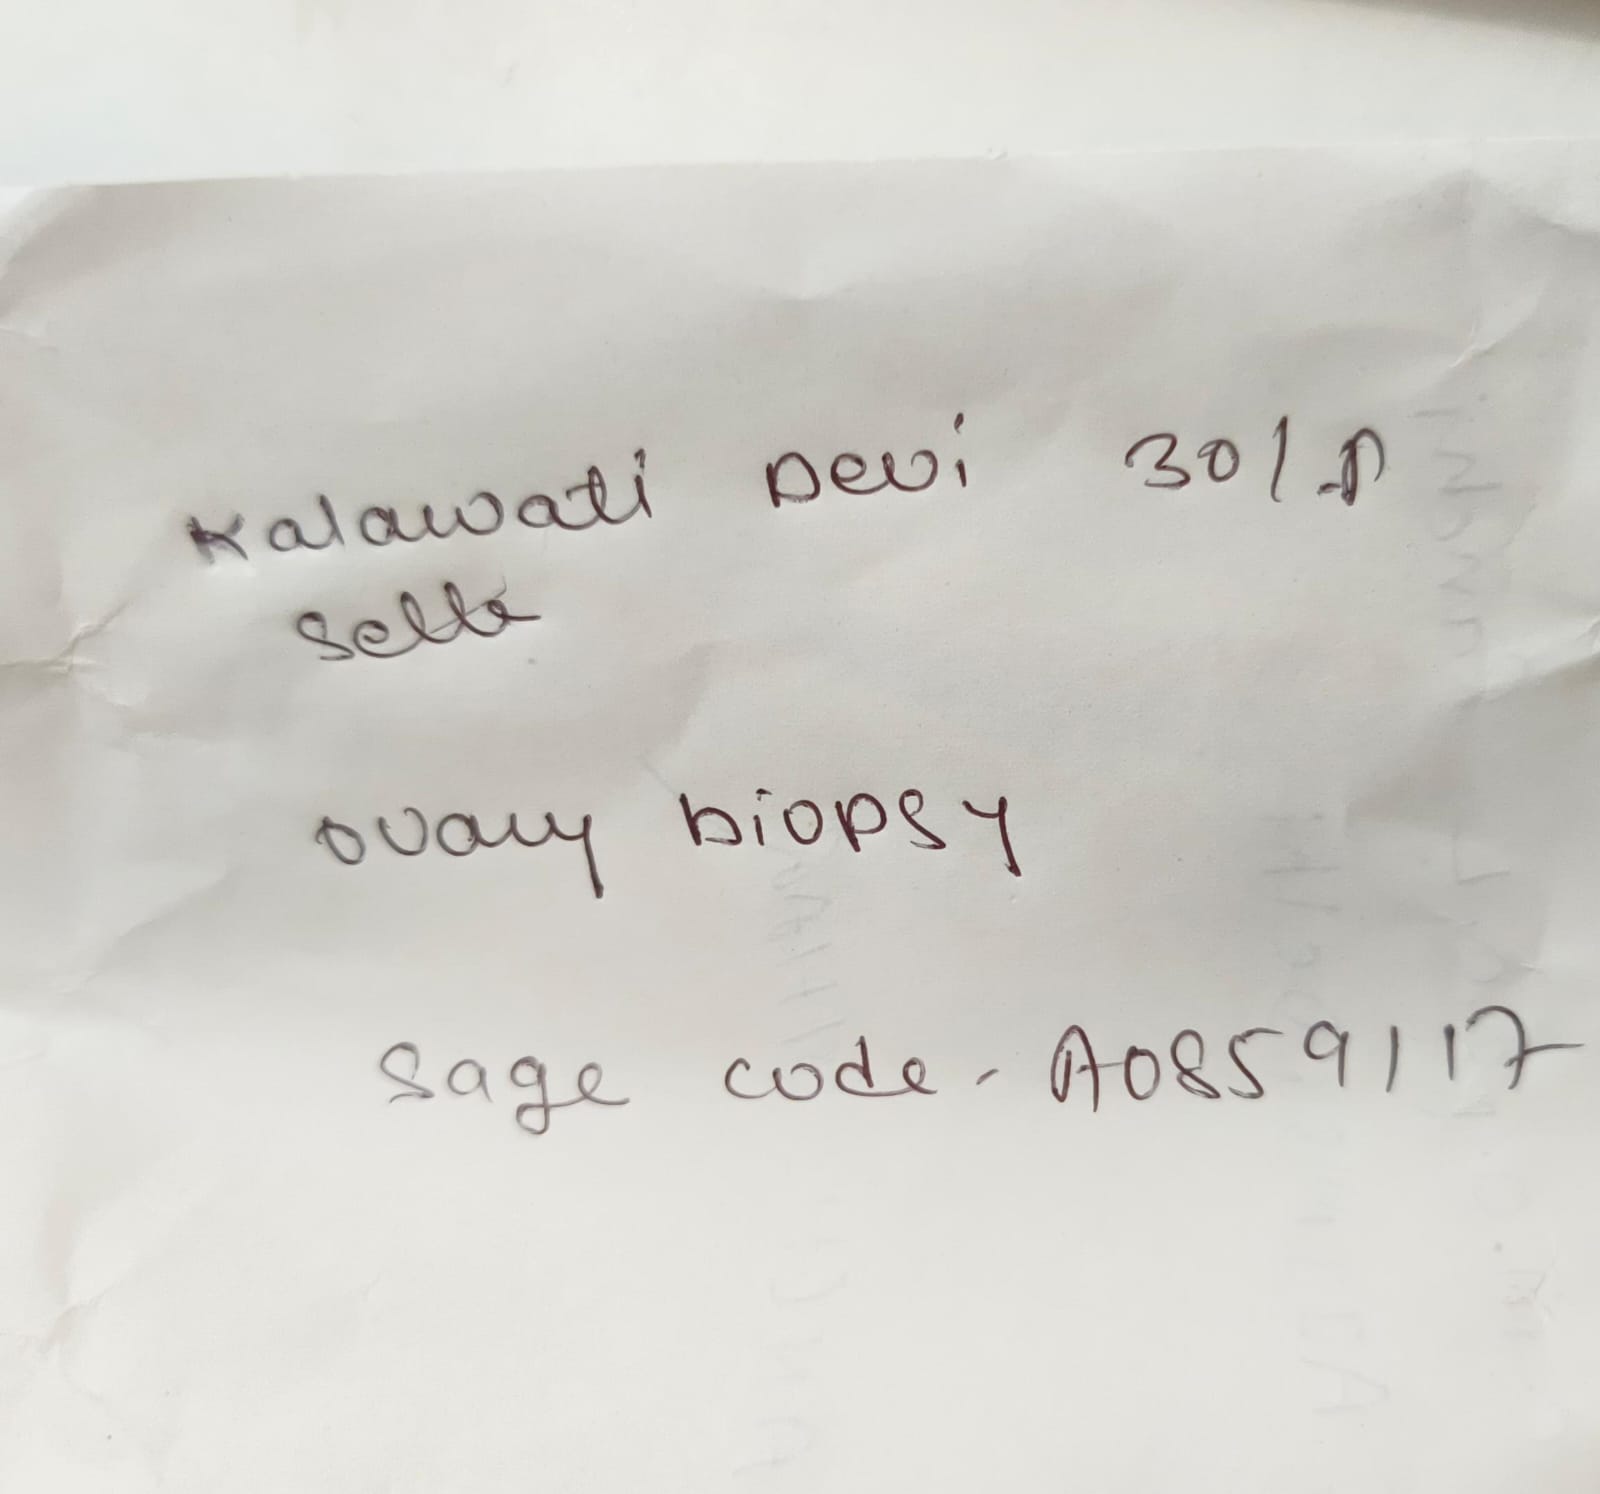 Kalawati Devi 30/
Selte
ovary biopsy
Sage code - A0859117